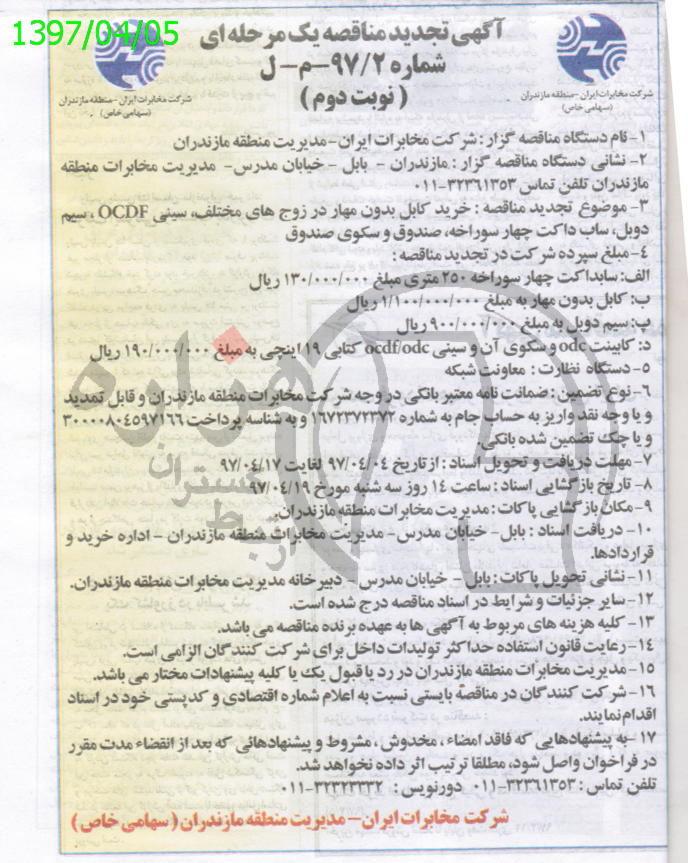 1397/04/05
آگهی تجدید مناقصه یک مرحله ای
شماره ۹۷/۲-م-ل
(نوبت دوم)
شرکت مخابرات ایران-منطقه مازندران
(سهامی خاص)
شرکت مخابرات ایران-منطقه مازندران
(سهامی خاص)
۱- نام دستگاه مناقصه گزار: شرکت مخابرات ایران-مدیریت منطقه مازندران
۲- نشانی دستگاه مناقصه گزار: مازندران - بابل - خیابان مدرس- مدیریت مخابرات منطقه
مازندران تلفن تماس ۳۲۳۶۱۳۵۳-۰۱۱
۳- موضوع تجدید مناقصه: خرید کابل بدون مهار در زوج های مختلف، سینی OCDF، سیم
دوبل، ساب داکت چهار سوراخه، صندوق و سکوی صندوق
۴- مبلغ سپرده شرکت در تجدید مناقصه:
الف: سابداکت چهار سوراخه ۲۵۰ متری مبلغ ۱۳۰/۰۰۰/۰۰۰ ریال
ب: کابل بدون مهار به مبلغ ۱/۱۰۰/۰۰۰/۰۰۰ ریال
پ: سیم دوبل به مبلغ ۹۰۰/۰۰۰/۰۰۰ ریال
د: کابینت odc و سکوی آن و سینی ocdf/odc کتابی ۱۹ اینچی به مبلغ ۱۹۰/۰۰۰/۰۰۰ ریال
۵- دستگاه نظارت: معاونت شبکه
۶- نوع تضمین: ضمانت نامه معتبر بانکی در وجه شرکت مخابرات منطقه مازندران و قابل تمدید
و یا وجه نقد واریز به حساب جام به شماره ۱۶۷۲۳۷۲۳۷۲ و به شناسه پرداخت ۳۰۰۰۰۸۰۴۵۹۷۱۶۶
و یا چک تضمین شده بانکی.
۷- مهلت دریافت و تحویل اسناد: از تاریخ ۹۷/۰۴/۰۴ لغایت ۹۷/۰۴/۱۷
۸- تاریخ بازگشایی اسناد: ساعت ۱۴ روز سه شنبه مورخ ۹۷/۰۴/۱۹
۹- مکان بازگشایی پاکات: مدیریت مخابرات منطقه مازندران.
۱۰- دریافت اسناد: بابل- خیابان مدرس- مدیریت مخابرات منطقه مازندران - اداره خرید و
قراردادها.
۱۱- نشانی تحویل پاکات: بابل - خیابان مدرس - دبیرخانه مدیریت مخابرات منطقه مازندران.
۱۲- سایر جزئیات و شرایط در اسناد مناقصه درج شده است.
۱۳- کلیه هزینه های مربوط به آگهی ها به عهده برنده مناقصه می باشد.
۱۴- رعایت قانون استفاده حداکثر تولیدات داخل برای شرکت کنندگان الزامی است.
۱۵- مدیریت مخابرات منطقه مازندران در رد یا قبول یک یا کلیه پیشنهادات مختار می باشد.
۱۶- شرکت کنندگان در مناقصه بایستی نسبت به اعلام شماره اقتصادی و کدپستی خود در اسناد
اقدام نمایند.
۱۷- به پیشنهادهایی که فاقد امضاء، مخدوش، مشروط و پیشنهادهائی که بعد از انقضاء مدت مقرر
در فراخوان واصل شود، مطلقا ترتیب اثر داده نخواهد شد.
تلفن تماس: ۳۲۳۶۱۳۵۳-۰۱۱ دورنویس: ۳۲۳۲۴۳۳۲-۰۱۱
شرکت مخابرات ایران- مدیریت منطقه مازندران (سهامی خاص)